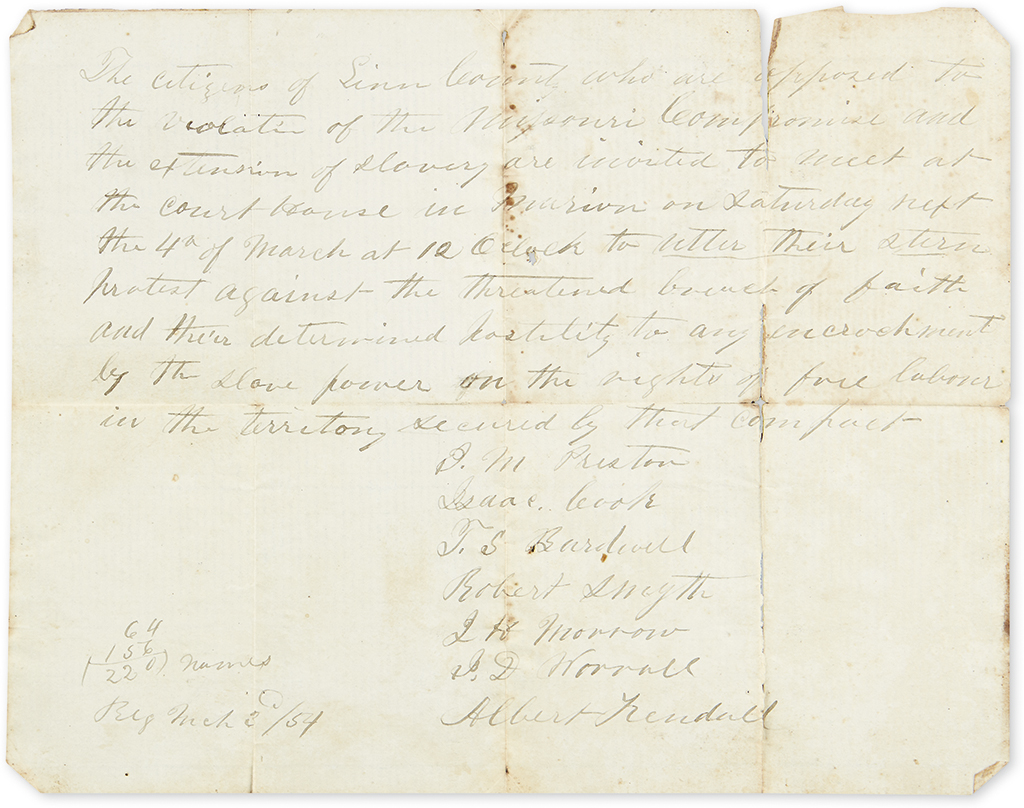 The citizens of Linn County who are opposed to
the violatin of the Missouri Compromise and
the extension of slavery are invited to meet at
the court house in Marion on Saturday next
the 4th of March at 12 Oclock to utter their stern
protest against the threatened breach of faith
and their determined hostility to any encrochment
by the slave power on the rights of free labour
in the territory secured by that compact
I. M Preston
Isaac Cook
T. S Bardwell
Robert Smyth
J H Morrow
J. D Worrall
Albert Kendall
64
156
(220) names
Mch 3d/54